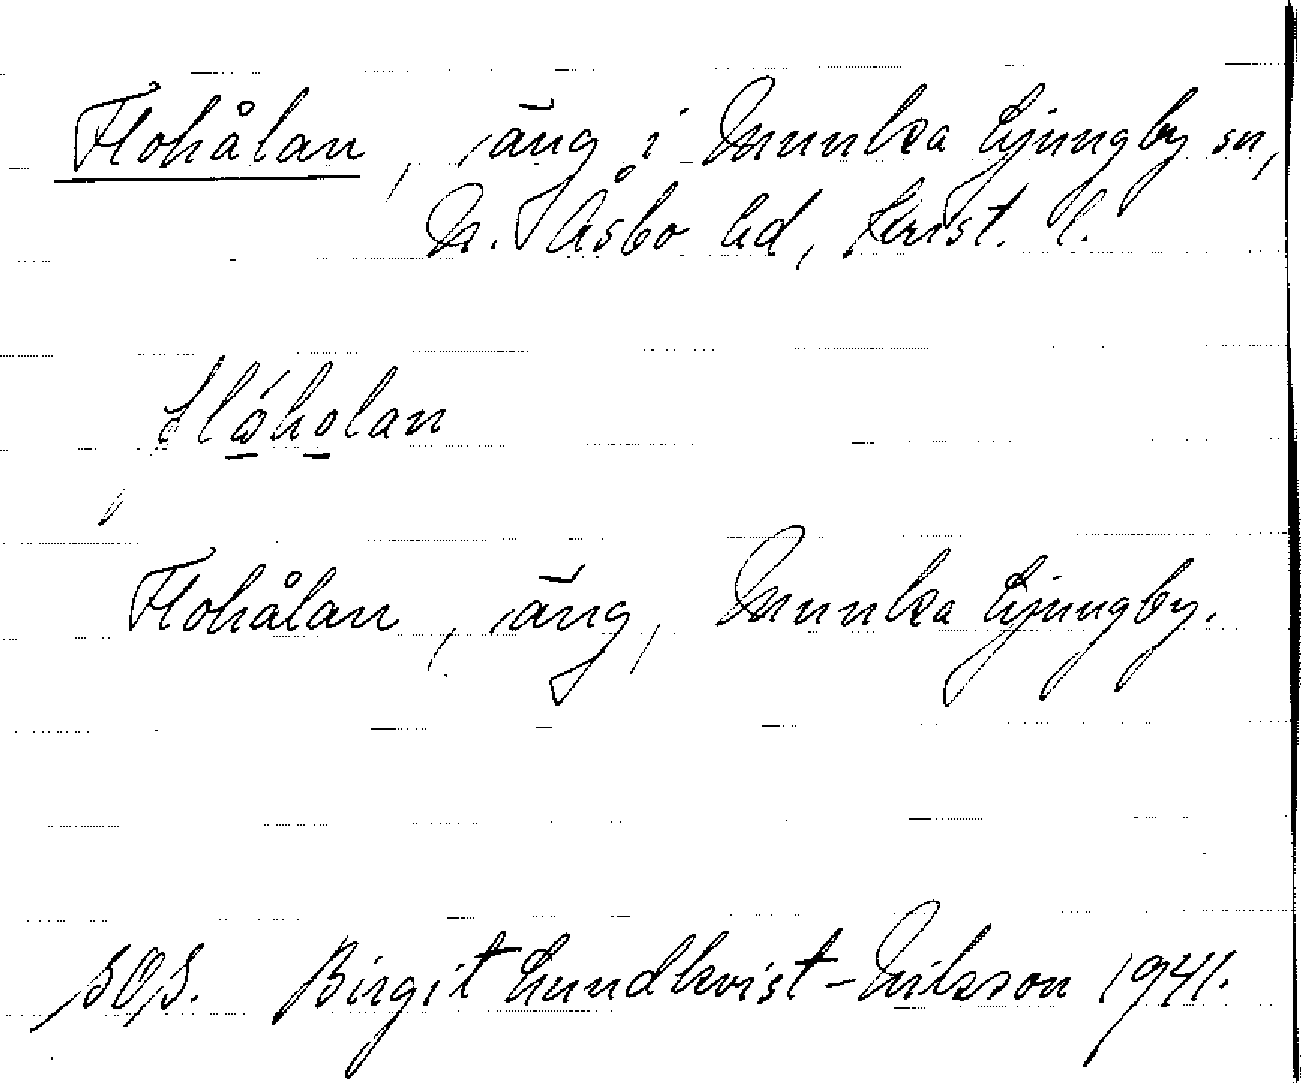 Flohålan, äng i Munka Ljungby sn,
N. Åsbo hd, Krist. l.
flóholan
Flohålan, äng, Munka Ljungby.
Birgit Lundkvist-Nilsson 1941.